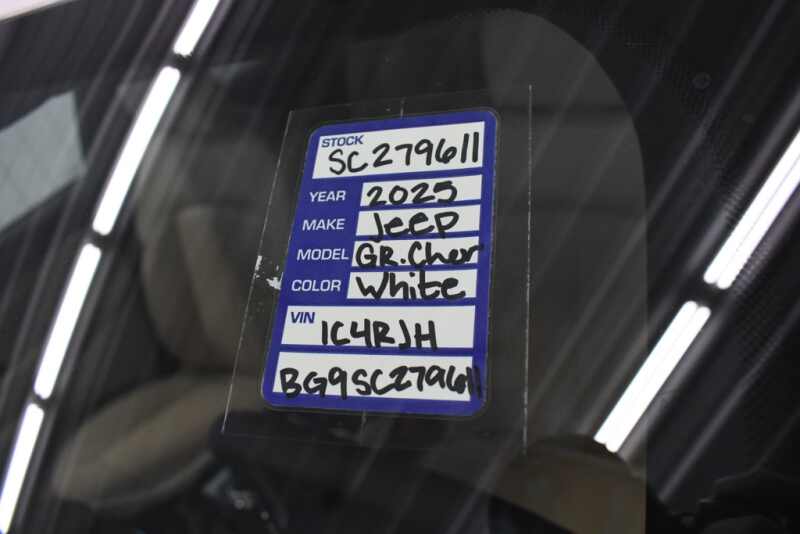 STOCK
SC279611
YEAR 2025
MAKE Jeep
MODEL GR.Cher
COLOR White
VIN
1C4RJH
BG9SC279611